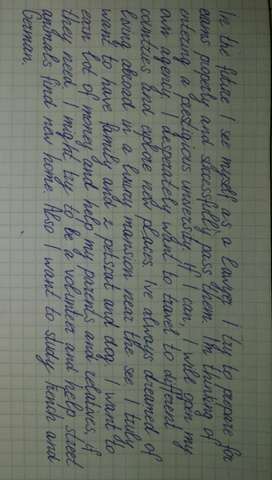 In the future I see myself as a lawyer. I try to prepare for
exams properly and successfully pass them. I'm thinking of
entering a prestigious university. If I can, I will open my
own agency. I desperately want to travel to different
countries and explore new places. I've always dreamed of
living abroad in a luxury mansion near the see. I truly
want to have family and 2 pets:cat and dog. I want to
earn lot of money and help my parents and relatives. If
they need, I might try to be a volunteer and help street
animals find new home. Also I want to study french and
German.